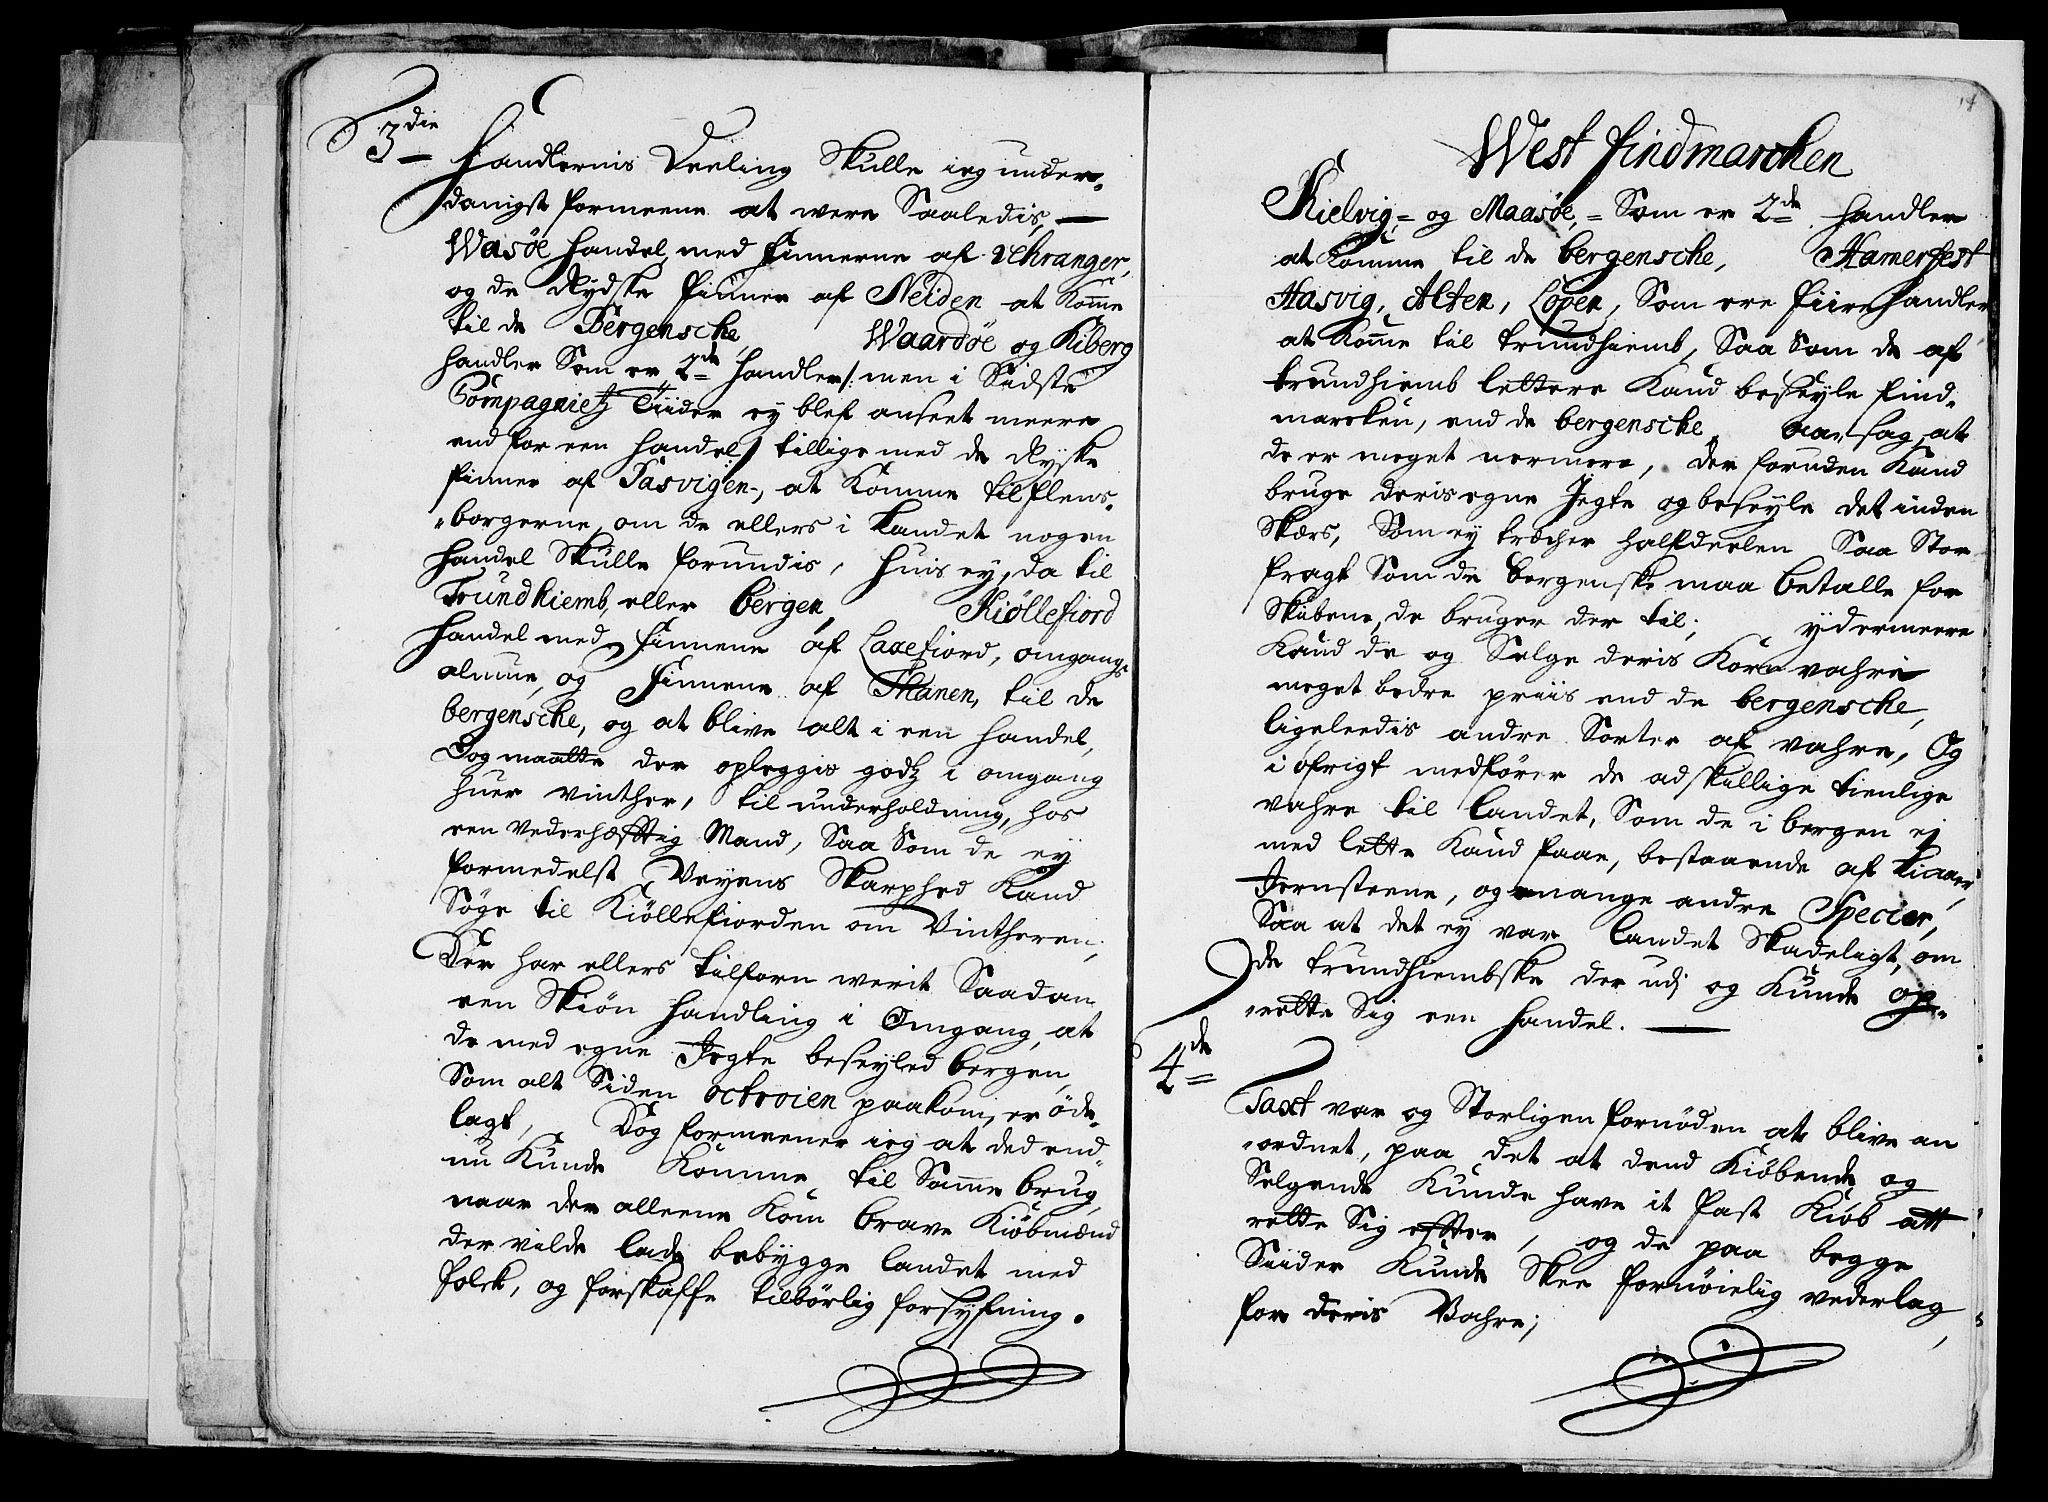 3die
Handlernis Deeling Skulle ieg under-
danigst formeene at were Saaledis,
Wasöe handel, med finnerne af Vehranger,
og de Rydske finner af Neiden at Komme
til de Bergensche, Waardöe og Kiberg
handler Som er 2de handler /: men i Sidste
Compagnietz Tiider ey blef anseet meere
end for een handel / tillige med de Ryske
finner af Pasvigen, at Komme til flens-
borgerne, om de ellers i Landet nogen
handel Skulle forundis, huis ey, da til
Trundhiemb, eller bergen, Kiöllefiord
handel med finnene af Laxefiord, omgangs
almue, og Finnene af Thanen, til de
bergensche, og at blive alt i een handel,
Dog maatte der opleggis godtz i omgang
huer vinther, til underholdning, hos
een vederhæfftig Mand, Saa Som de ey
formedelst Veyens Skarphed Kand
Söge til Kiöllefiorden om Vintheren;
Der har ellers tilforn werit Saadan
een Skiön handling i Omgang, at
de med egne Jegte beseyled bergen,
Som alt Siden octroien paakom, er öde-
lagt, Dog formeener ieg at ded end-
nu Kunde Komme til Samme brug,
naar der alleene Kom brave Kiöbmænd
der vilde lade bebygge landet med
folck, og forskaffe tilbörlig forsyfning.
14
West findmarchen
Kielvig, og Maasöe, Som er 2de handler
at Komme til de bergensche, Hamerfest
Hasvig, Alten, Loppen, Som ere fiire handler
at Komme til trundhiemb, Saa Som de af
trundhiemb lettere Kand beseyle find-
marcken, end de bergensche, aarsag, at
de er meget nermere, Der foruden Kand
bruge deris egne Jegte og beseyle det inden
Skærs, Som ey træcher halfdeelen Saa Stor
fragt Som de bergenske maa betalle for
Skibene, de bruger der til; ydermeere
Kand de og Selge deris Korn vahre
meget bedre priis end de bergensche,
ligeleedis andre Sorter af vahre, Og
i öfrigt medförer de adskellige tienlige
vahre til landet, Som de i bergen ej
med lette Kand faae, bestaaende af
Jernsteene, og mange andre Specier,
Saa at det ey var landet Skadeligt, om
de trundhiembske der udj og Kunde op-
rette Sig een handel.
4de
Taxt var og Storligen fornöden at blive an
ordnet, paa det at dend Kiöbende og
Selgende Kunde have it fast Kiöb att
rette Sig effter, og de paa begge
Siider Kunde Skee fornöielig vederlag
for deris Vahre;